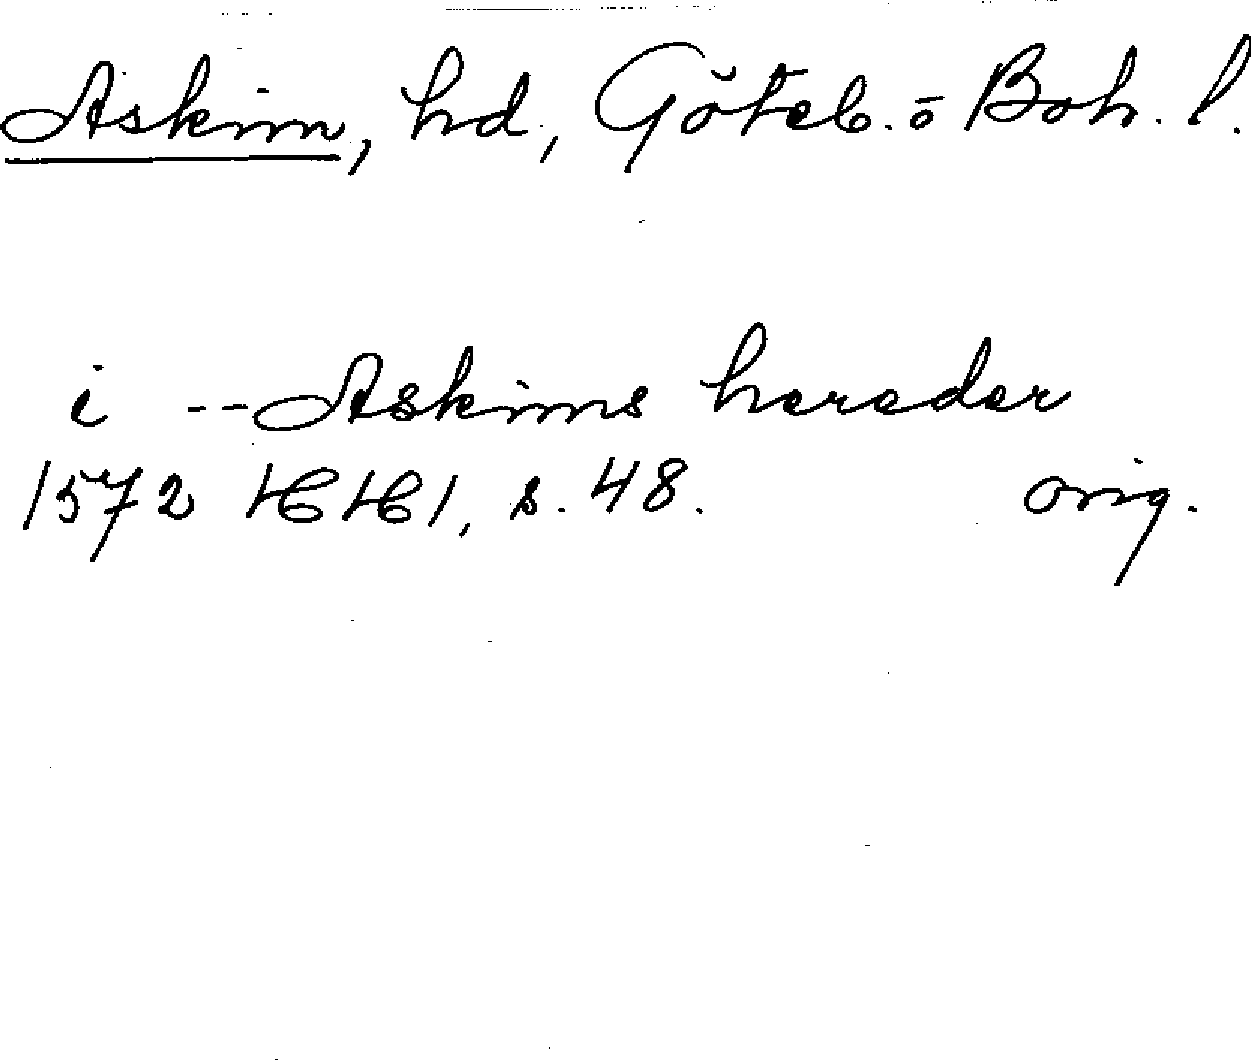 Askim, hd, Göteb. o Boh. l.
i -- Askims hereder
1572 HH 1, s. 48. orig.